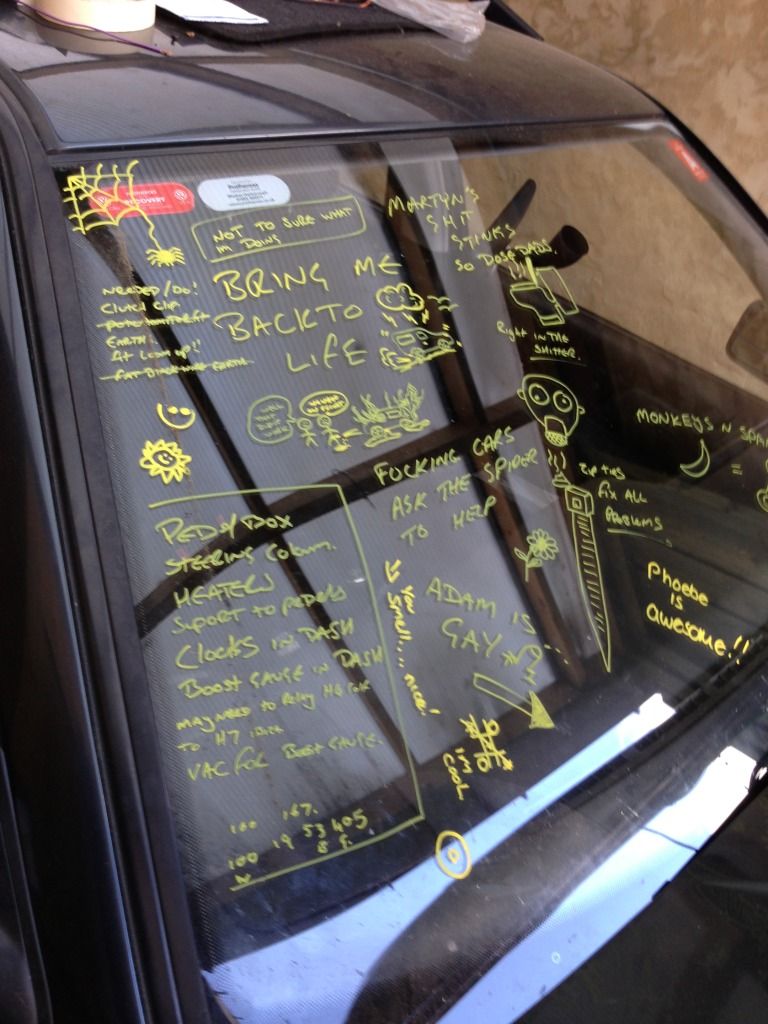 RECOVERY
NOT TO SURE WHAT
IM DOING
BRING ME
BACK TO
LIFE
MARTYN'S
SHIT
STINKS
SO DOSE DADS.
Right IN THE
SHITTER.
NEEDED/DO!
Clutch Clip.
EARTH.
At Loom up!!
FAT EARTH
MONKEYS N SPA
=
FUCKING CARS
ASK THE SPIDER
TO HELP
Zip ties
fix ALL
PROBLEMS
Phoebe
is
awesome!!
ADAM IS
GAY
You
Smell.... nice!
I'm
Cool
PEDS/BOX
STEERING Column.
HEATERS
SUPORT TO PEDALS
CLOCKS IN DASH
BOOST GAUGE IN DASH
MAY NEED TO Relay
TO H7
VAC for Boost GAUGE.
100 167.
19 53 405
100 8 f.
W